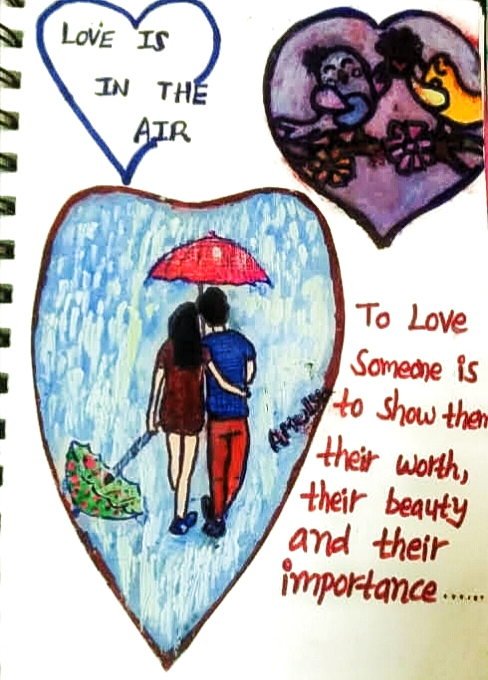 LOVE IS
IN THE
AIR
To Love
Someone is
to show them
their worth,
their beauty
and their
importance......